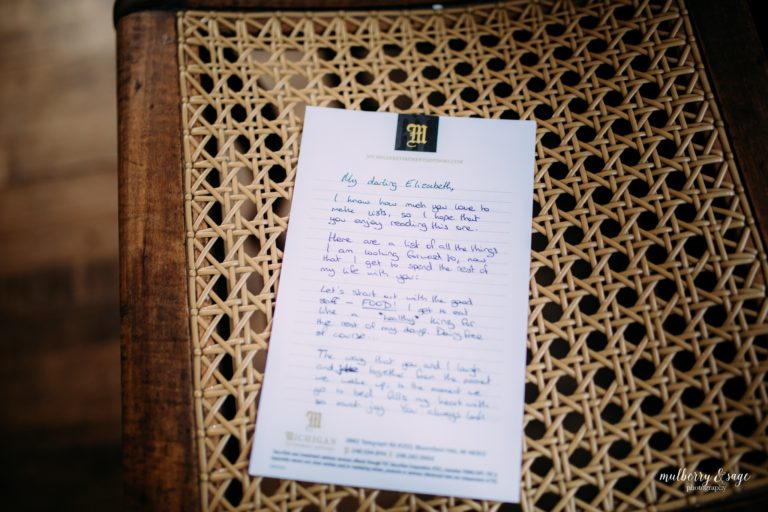 M
My darling Elizabeth,
I know how much you love to
make lists, so I hope that
you enjoy reading this one.
Here are a list of all the things
I am looking forward to, now
that I get to spend the rest of
my life with you:
Let's start out with the good
stuff - FOOD! I get to eat
like a *healthy* king for
the rest of my days. Dairy free
of course...
The way that you and I laugh
and together from the moment
we wake up, to the moment we
go to bed fills my heart with
so much joy. You always look
M
MICHIGAN
mulberry & sage
photography